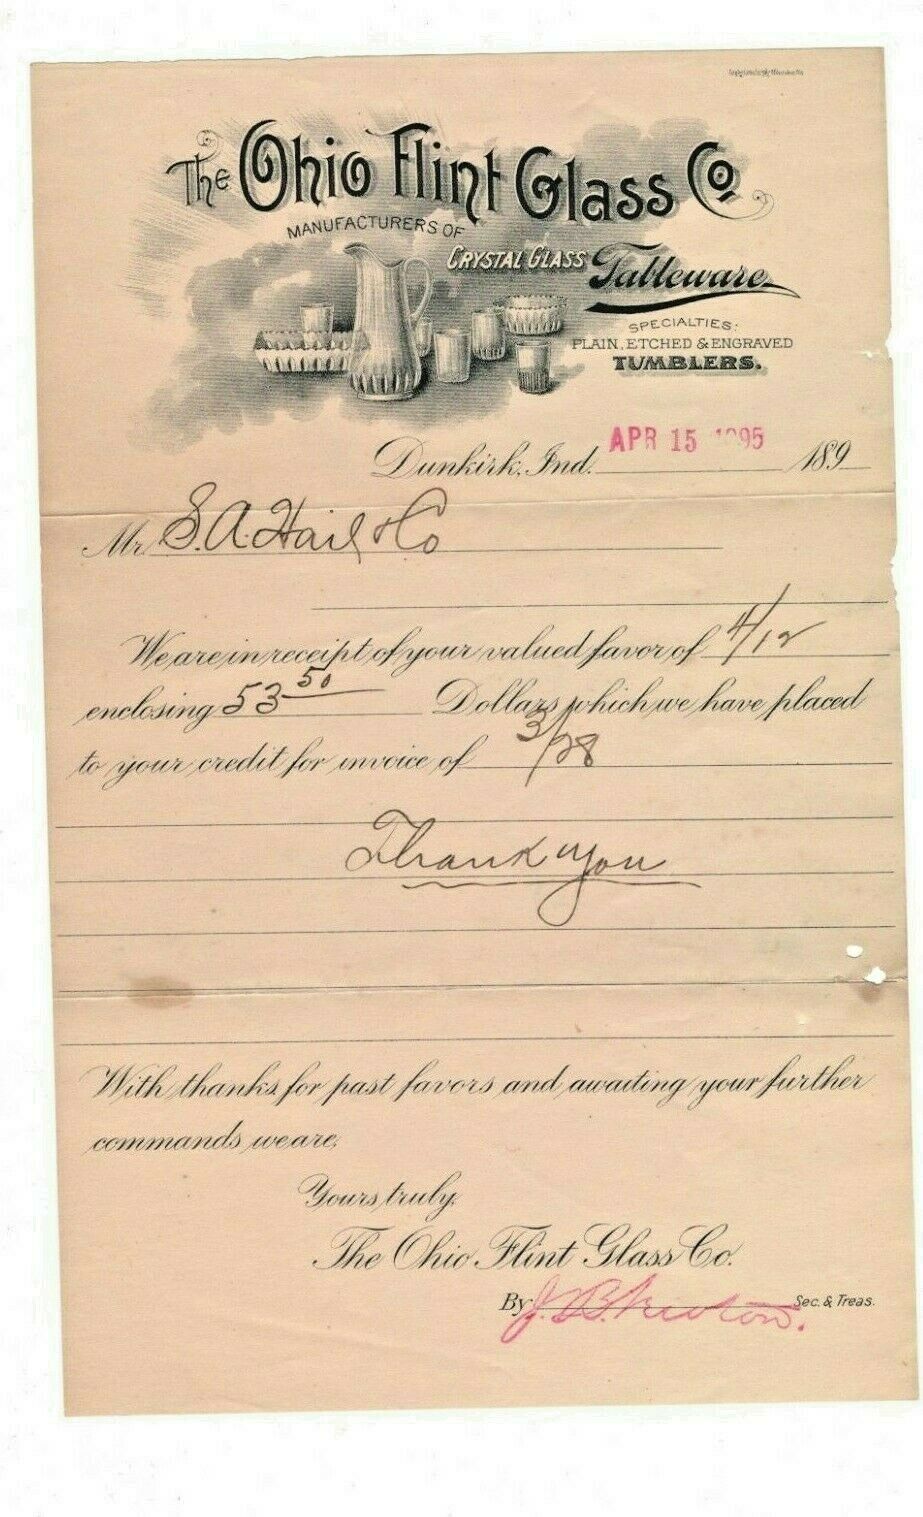 The Ohio Flint Glass Co.
MANUFACTURERS OF
CRYSTAL GLASS Tableware
SPECIALTIES:
PLAIN, ETCHED & ENGRAVED
TUMBLERS.
Dunkirk, Ind. APR 15 1895 189
Mr. S. A. Hail & Co
We are in receipt of your valued favor of 4/12
enclosing 53 50 Dollars which we have placed
to your credit for invoice of 3/28
Thank you
With thanks for past favors and awaiting your further
commands we are,
Yours truly,
The Ohio Flint Glass Co.
By J. Sec. & Treas.